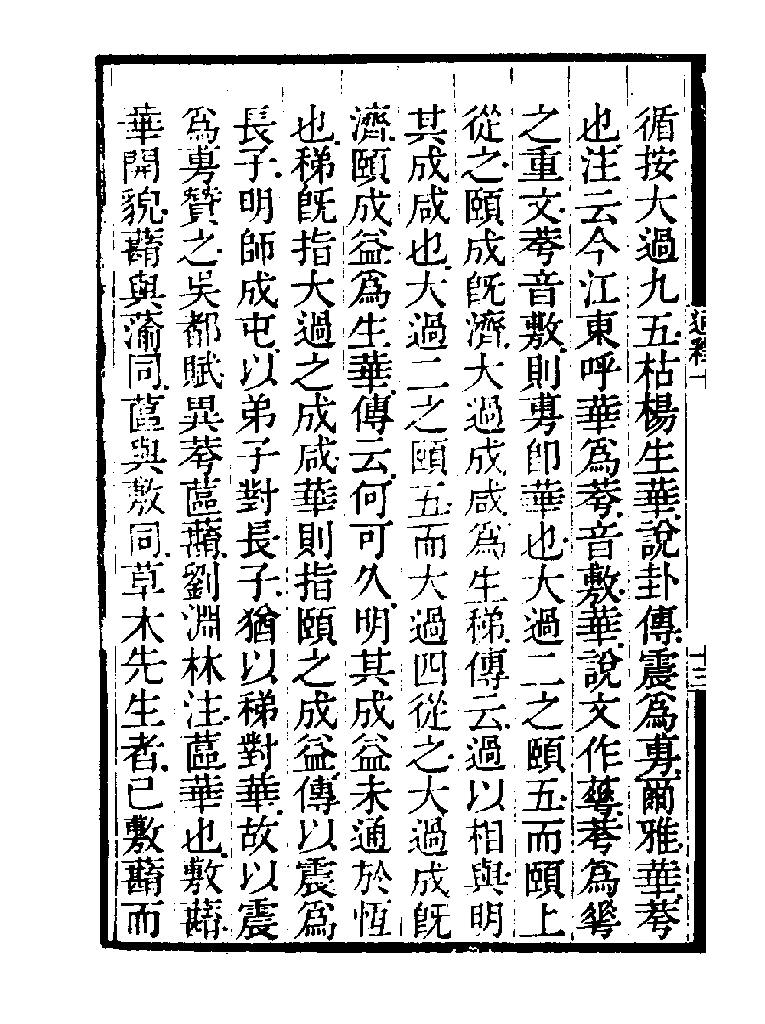 循按大過九五枯楊生華說卦傳震爲旉爾雅華荂
也注云今江東呼華爲荂音敷華說文作𠌶荂爲𠌶
之重文荂音敷則旉卽華也大過二之頤五而頤上
從之頤成旣濟大過成咸爲生稊傳云過以相與明
其成咸也大過二之頤五而大過四從之大過成旣
濟頤成益爲生華傳云何可久明其成益未通於恆
也稊旣指大過之成咸華則指頤之成益傳以震爲
長子明師成屯以弟子對長子猶以稊對華故以震
爲旉贊之吳都賦異荂蓲蘛劉淵林注蓲華也敷蘛
華開貌蘛與蕍同蓲與敷同草木先生者已敷蘛而
通釋十
十三